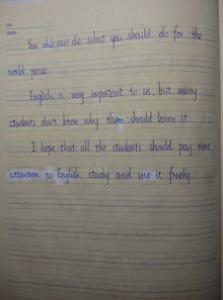 NO.
Date
You who can do what you should do for the
world peace.
English is very important to us, but many
students don't know why them should learn it
I hope that all the students should pay more
attention to English study and use it freely.